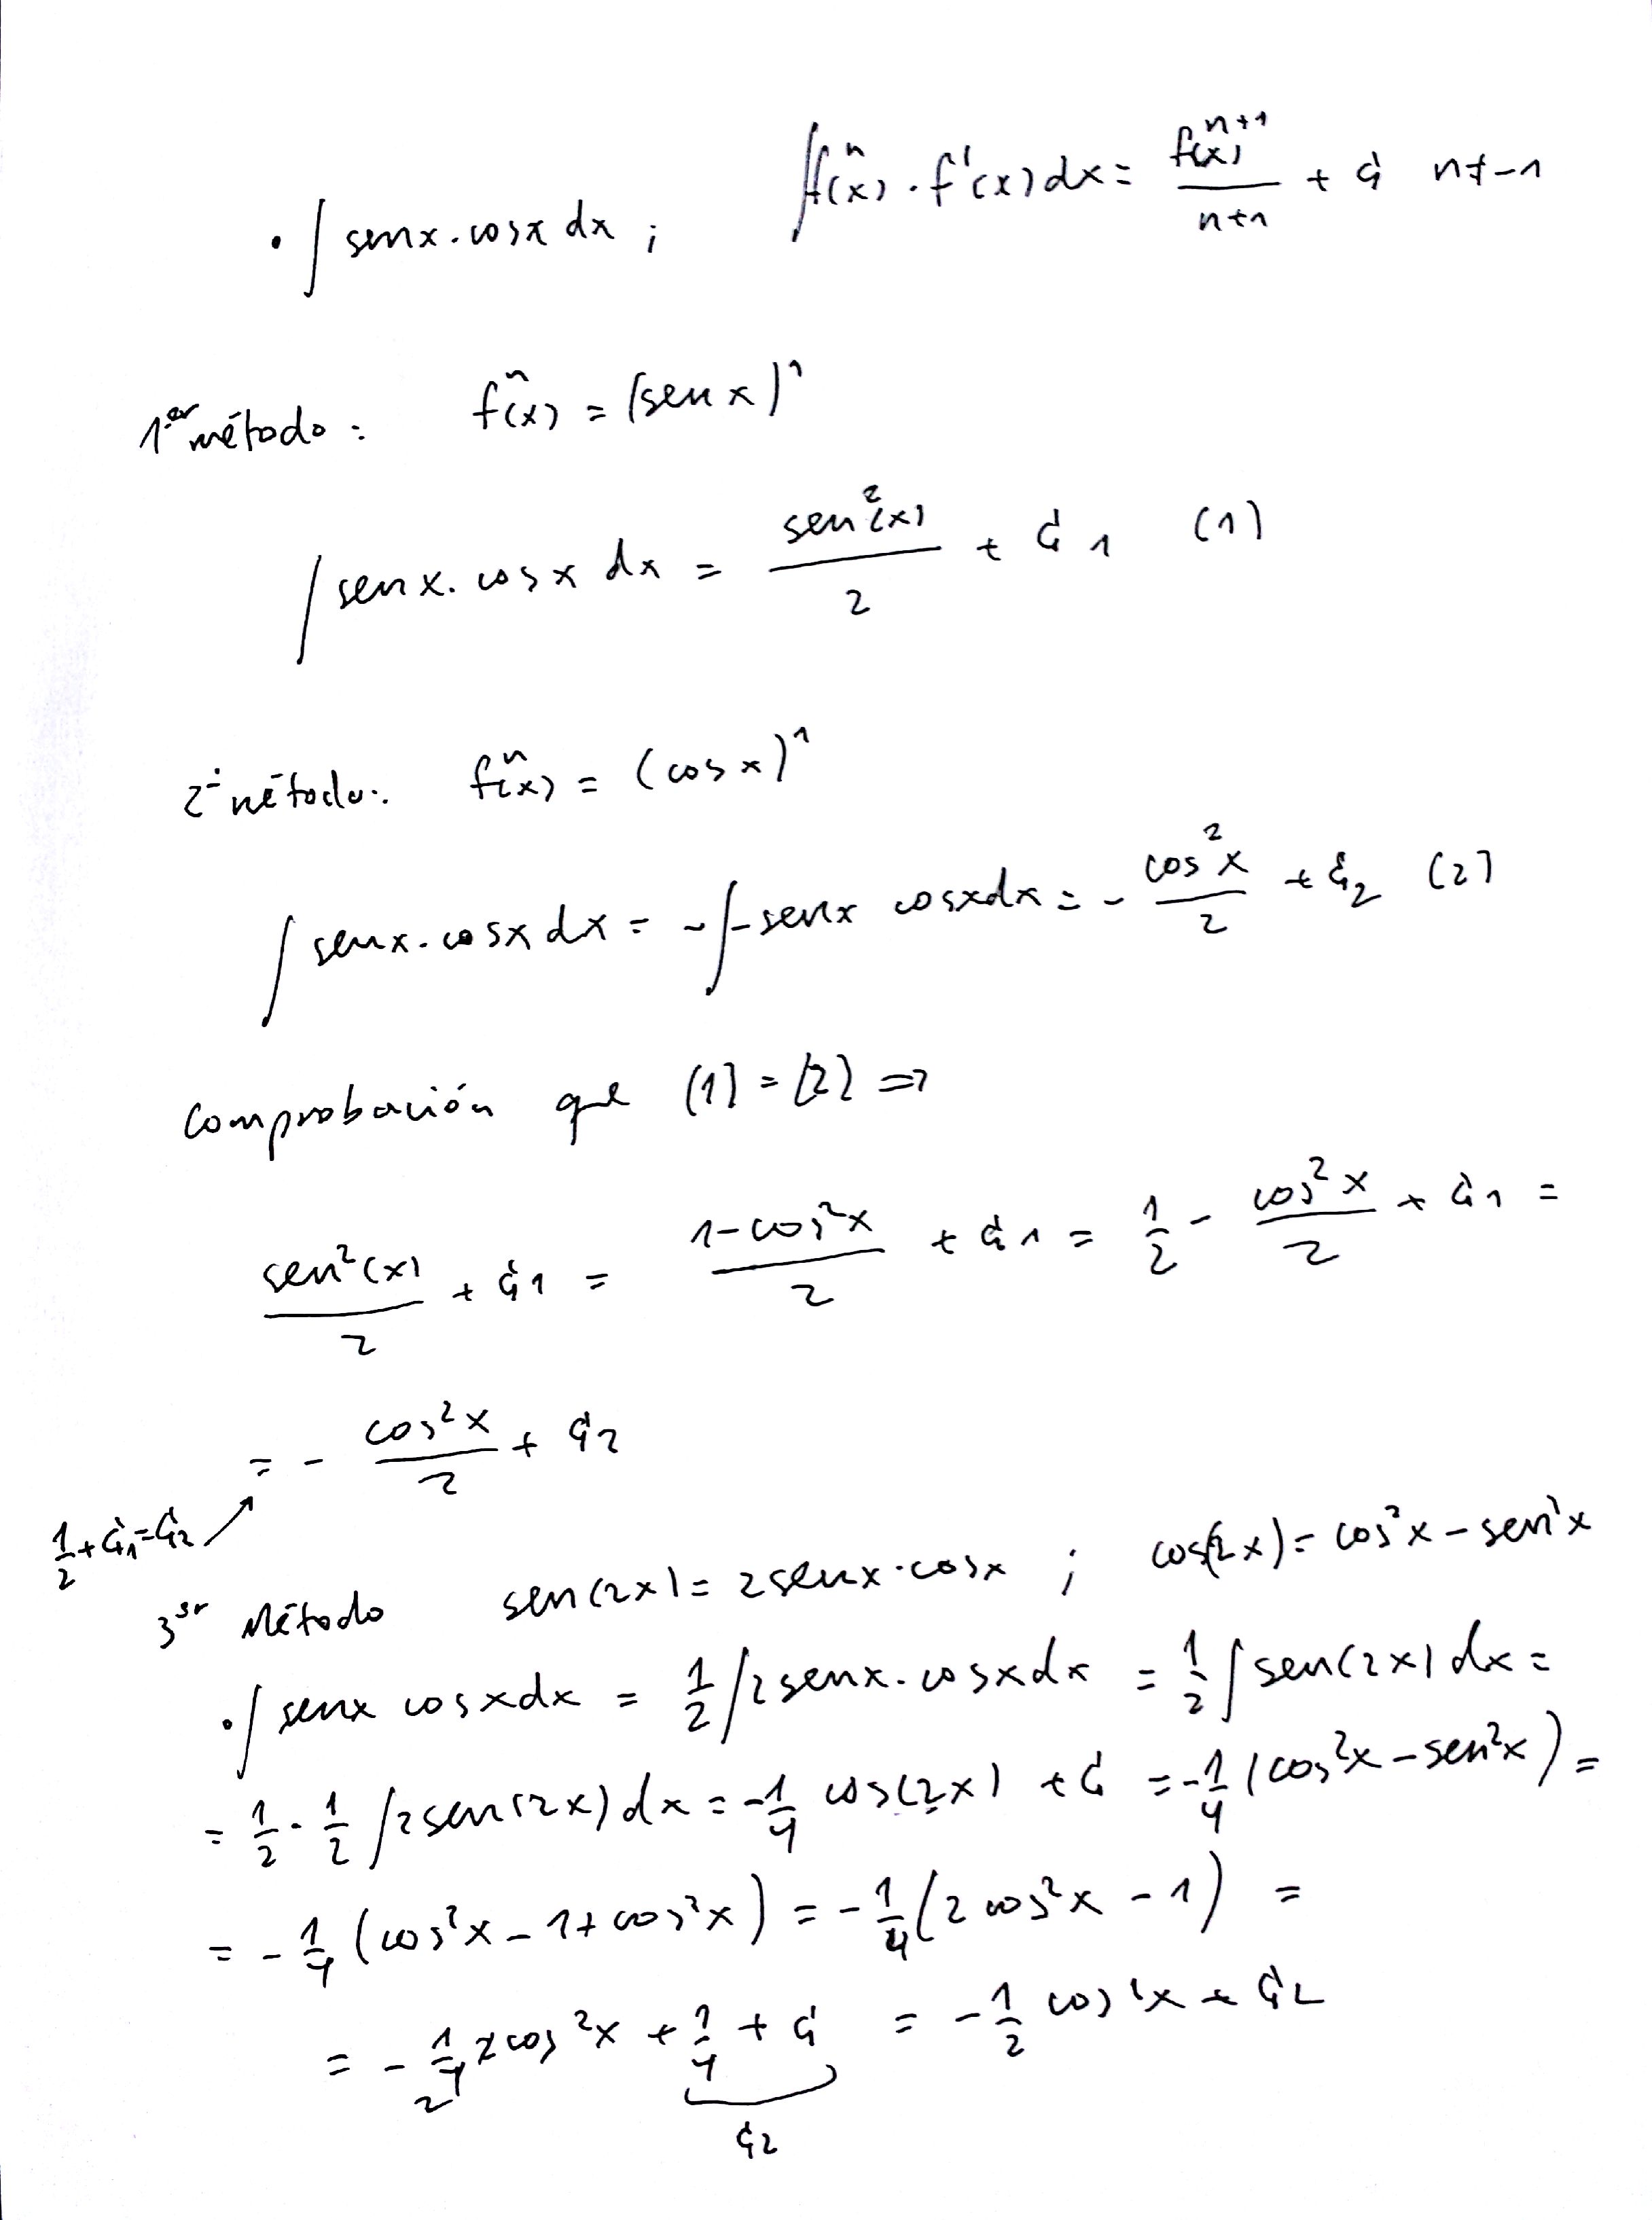 • ∫ senx.cosx dx ; ∫fⁿ(x).f'(x)dx = f(x)ⁿ⁺¹/(n+1) + C n≠-1
1.er método: fⁿ(x) = (sen x)¹
∫ senx.cosx dx = sen²(x)/2 + C1 (1)
2º método: fⁿ(x) = (cos x)¹
∫ senx.cosx dx = -∫-senx cosxdx = - cos²x/2 + C2 (2)
Comprobación que (1) = (2) ⇒
sen²(x)/2 + C1 = (1-cos²x)/2 + C1 = 1/2 - cos²x/2 + C1 =
= - cos²x/2 + C2
1/2 + C1 = C2 ↗
3er Método sen(2x) = 2senx.cosx ; cos(2x) = cos²x - sen²x
• ∫ senx cosxdx = 1/2 ∫2senx.cosxdx = 1/2 ∫ sen(2x)dx =
= 1/2 . 1/2 ∫2sen(2x)dx = -1/4 cos(2x) + C = -1/4 (cos²x - sen²x) =
= -1/4 (cos²x - 1 + cos²x) = -1/4 (2cos²x - 1) =
= - 1/4 2cos²x + 1/4 + C = -1/2 cos²x + C2
2 C2